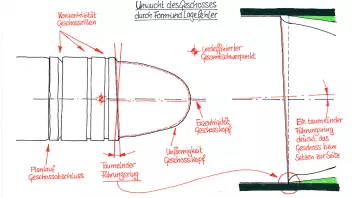 Unwucht des Geschosses
durch Form und Lagefehler
Konzentrizität
Geschossrillen
undefinierter
Gesamtschwerpunkt
Exzentrizität
Geschosskopf
Unförmigkeit
Geschosskopf
Planlauf
Geschossabschluss
Taumelnder
Führungsring
Ein taumelnder
Führungsring
drückt das
Geschoss beim
Setzen zur Seite